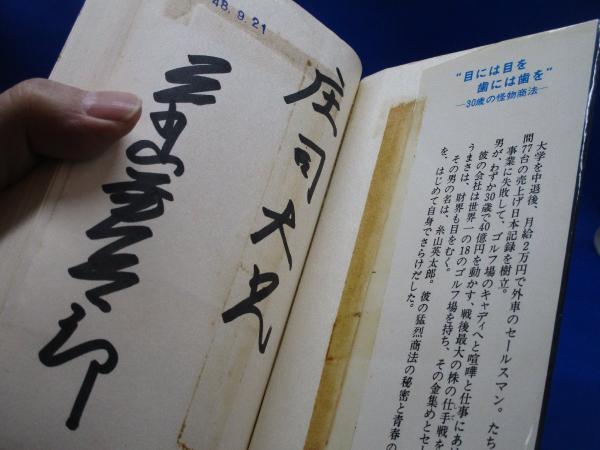 48.9.21
庄司大兄
“目には目を
歯には歯を”
―30歳の怪物商法―
大学を中退後、月給2万円で外車のセールスマン。たち
間77台の売上げ日本記録を樹立。
事業に失敗して、ゴルフ場のキャディへと喧嘩と仕事にあ
男が、わずか30歳で40億円を動かす、戦後最大の株の仕手戦を
彼の会社は世界一の18のゴルフ場を持ち、その金集めとセー
うまさは、財界も目をむく。
その男の名は、糸山英太郎。彼の猛烈商法の秘密と青春の
を、はじめて自身でさらけだした。